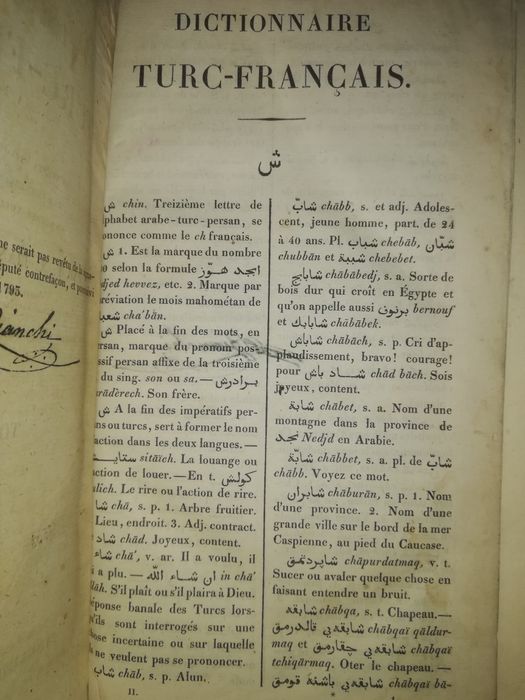 DICTIONNAIRE
TURC-FRANÇAIS.
ش
ne serait pas revêtu de la
éputé contrefaçon, et poursuivi
1795.
Bianchi
ش chin. Treizième lettre de
lphabet arabe-turc-persan, se
ononce comme le ch français.
ش 1. Est la marque du nombre
0 selon la formule ابجد هوز
djed hevvez, etc. 2. Marque par
réviation le mois mahométan de
شعبان cha'bân.
ش Placé à la fin des mots, en
rsan, marque du pronom pos-
ssif persan affixe de la troisième
du sing. son ou sa. — برادرش
râderech. Son frère.
ش A la fin des impératifs per-
ns ou turcs, sert à former le nom
action dans les deux langues. —
ستايش sitâïch. La louange ou
action de louer. — En t. كولش
ulich. Le rire ou l'action de rire.
شا châ, s. p. 1. Arbre fruitier.
Lieu, endroit. 3. Adj. contract.
شاد châd. Joyeux, content.
شاء châ', v. ar. Il a voulu, il
a plu. — ان شاء الله in châ'
llâh. S'il plaît ou s'il plaira à Dieu.
éponse banale des Turcs lors-
'ils sont interrogés sur une
ose incertaine ou sur laquelle
ne veulent pas se prononcer.
شاب châb, s. p. Alun.
II.
شابّ châbb, s. et adj. Adoles-
cent, jeune homme, part. de 24
à 40 ans. Pl. شباب chebâb, شبّان
chubbân et شبيبة chebebet.
شابابج châbâbedj, s. a. Sorte de
bois dur qui croît en Égypte et
qu'on appelle aussi برنوف bernouf
et شابابك châbâbek.
شاباش châbâch, s. p. Cri d'ap-
plaudissement, bravo! courage!
pour شاد باش châd bâch. Sois
joyeux, content.
شابة châbet, s. a. Nom d'une
montagne dans la province de
نجد Nedjd en Arabie.
شابّة châbbet, s. a. pl. de شابّ
châbb. Voyez ce mot.
شابران châburân, s. p. 1. Nom
d'une province. 2. Nom d'une
grande ville sur le bord de la mer
Caspienne, au pied du Caucase.
شاپردتمق châpurdatmaq, v. t.
Sucer ou avaler quelque chose en
faisant entendre un bruit.
شابقه châbqa, s. t. Chapeau.—
شابقه‌يى قالدرمق châbqaï qâldur-
maq et شابقه‌يى چقارمق châbqaï
tchiqârmaq. Oter le chapeau. —
شابقه‌يى باشنه قومق châbqaï bâ-